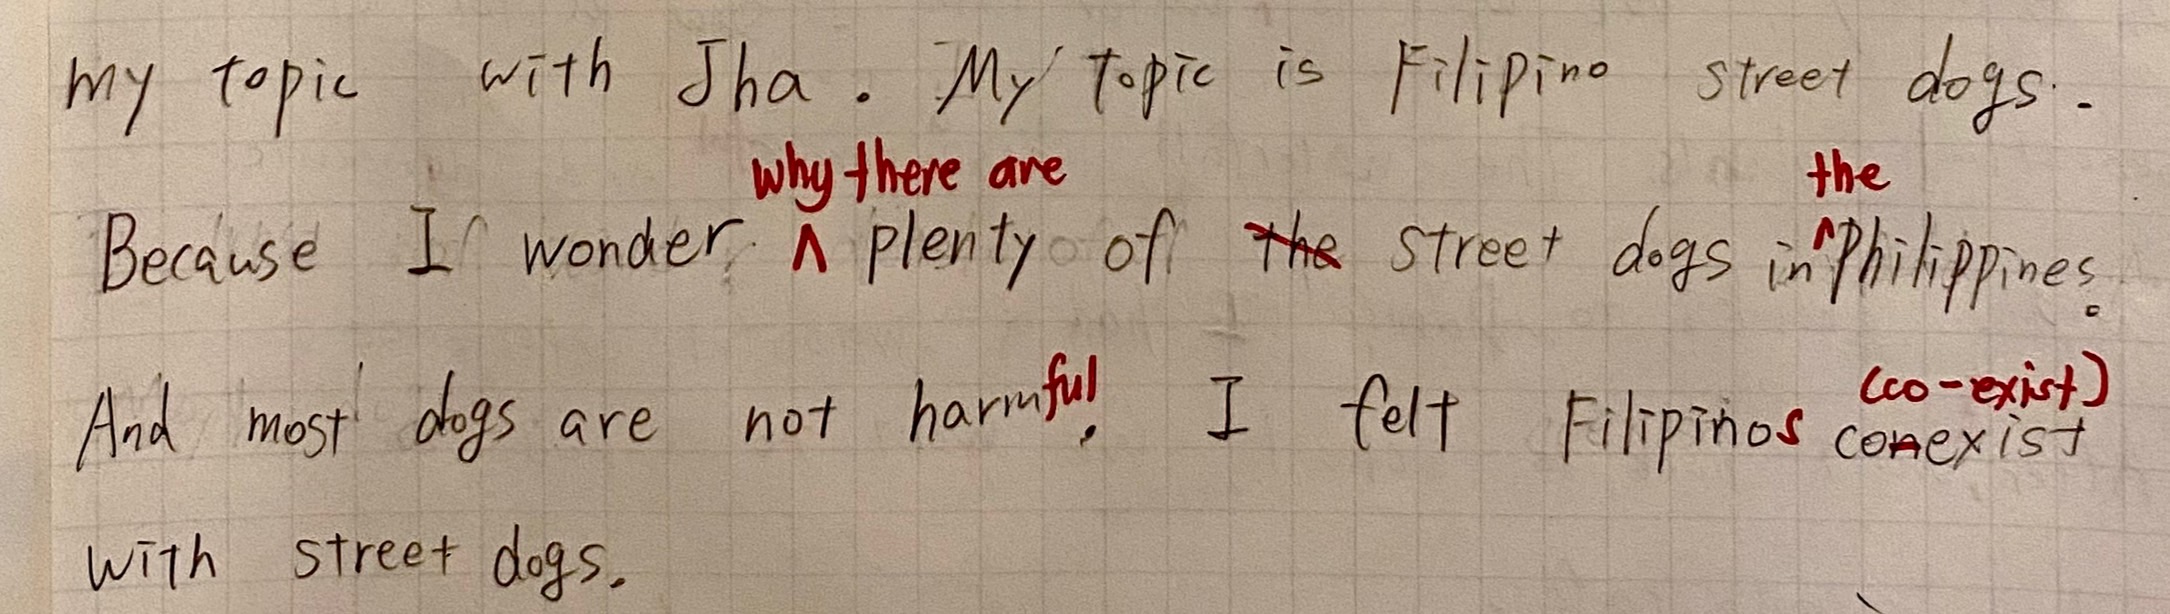 my topic with Jha. My topic is Filipino street dogs.
why there are the
Because I wonder plenty of the street dogs in Philippines.
(co-exist)
And most dogs are not harmful. I felt Filipinos conexist
with street dogs.